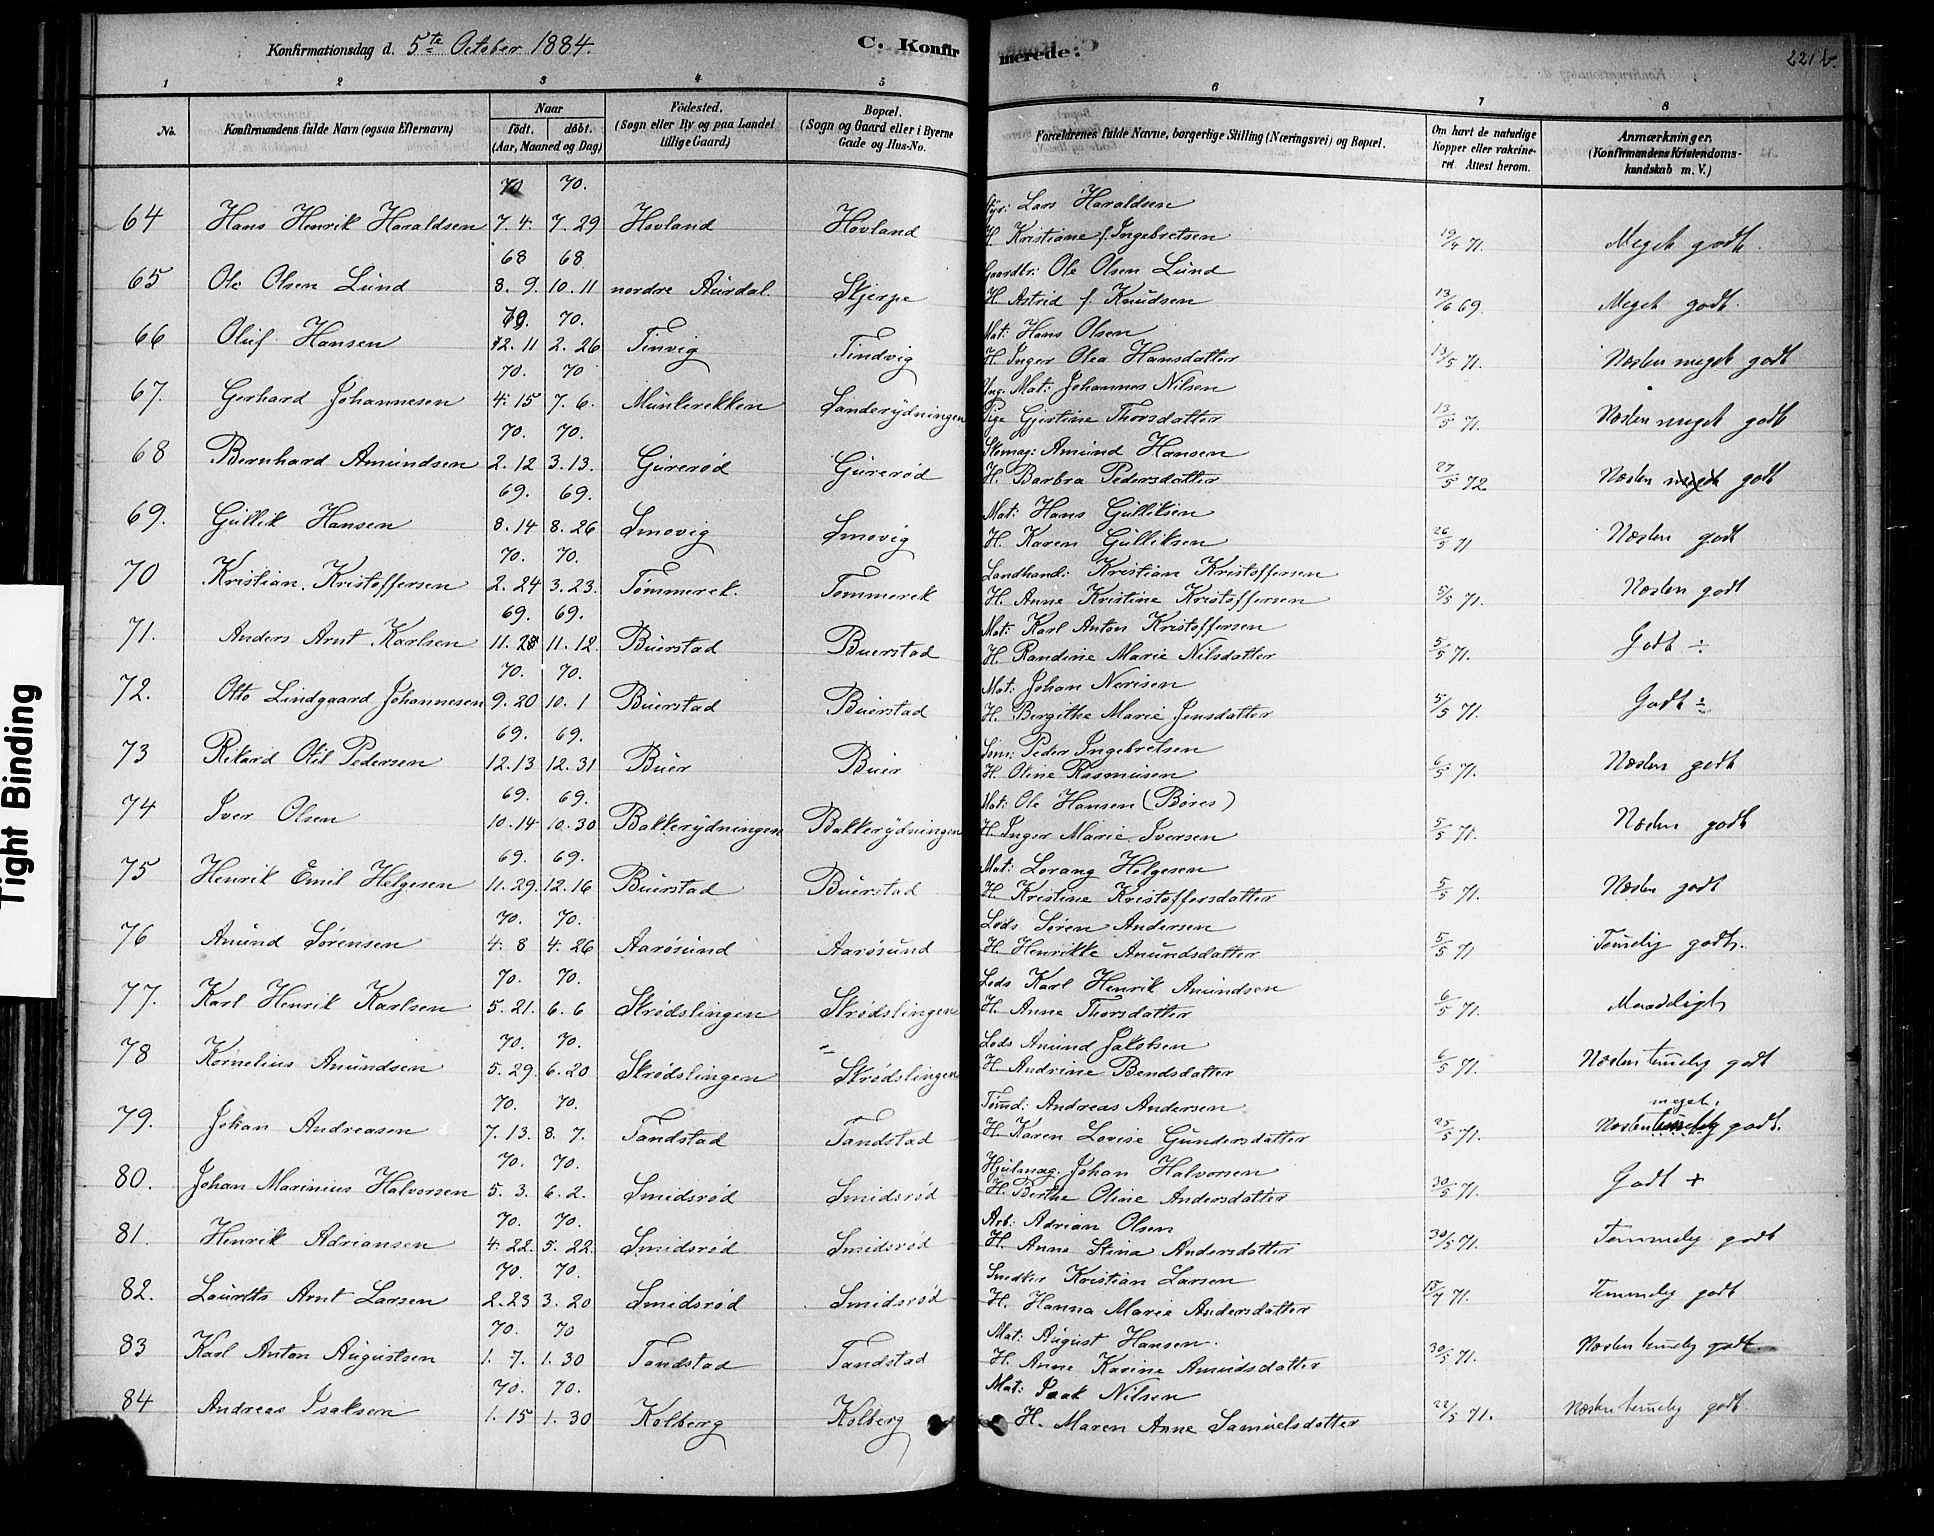 Konfirmationsdag d. 5te October 1884.
C. Konfirmerede.
221 b.
1 2 3 4 5 6 7 8
No.
Konfirmandens fulde Navn (ogsaa Efternavn)
Naar
født. døbt.
(Aar, Maaned og Dag)
Fødested.
(Sogn eller By og paa Landet
tillige Gaard)
Bopæl.
(Sogn og Gaard eller i Byerne
Gade og Hus-No.
Forældrenes fulde Navne, borgerlige Stilling (Næringsvei) og Bopæl.
Om havt de naturlige
Kopper eller vakcine-
ret Attest herom.
Anmærkninger.
(Konfirmandens Kristendoms-
kundskab m. V.)
70 70. Lars Haraldsen
64 Hans Henrik Haraldsen 7. 4. 7. 29 Hovland Hovland H. Kristiane f. Ingebretsen 19/4 71. Meget godt.
68 68 Gaardbr: Ole Olsen Lund
65 Ole Olsen Lund 8. 9. 10. 11 nordre Aurdal. Skjerpe H. Astrid f. Knudsen 13/6 69. Meget godt.
70. Mat: Hans Olsen
66 Oluf Hansen 2. 26 Tinvig Tindvig H. Inger Olea Hansdatter 13/5 71. Næsten meget godt
70. 70 Ung. Mat: Johannes Nilsen
67. Gerhard Johannesen 4. 15 7. 6. Munkerekken Sanderydningen Pige Gjertine Thorsdatter 13/5 71. Næsten meget godt
70. 70. Skomag: Amund Hansen
68 Bernhard Amundsen 2. 12 3. 13. Gurerød Gurerød H. Barbra Pedersdatter 27/5 72 Næsten meget godt
69. 69. Mat: Hans Gulliksen
69. Gullik Hansen 8. 14 8. 26 Smovig Smovig H. Karen Gulliksen 26/5 71 Næsten godt
70. 70. Landhand: Kristian Kristoffersen
70 Kristian Kristoffersen 2. 24 3. 23. Tømmerek. Tømmerek H. Anne Kristine Kristoffersen 5/5 71. Næsten godt
69. 69. Mat: Karl Anton Kristoffersen
71. Anders Arnt Karlsen 11. 11. 12. Buerstad Buerstad H. Randine Marie Nilsdatter 5/5 71. Godt ÷
70. 70. Mat: Johan
72. Otto Lindgaard Johannesen 9. 20 10. 1 Buerstad Buerstad H. Bergithe Marie Jensdatter 5/5 71. Godt ÷
69. 69. Søm: Peder Ingebretsen
73 Rikard Otil Pedersen 12. 13 12. 31 Buer Buer H. Oline Rasmusen 6/5 71. Næsten godt
69. 69. Mat: Ole Hansen (Børes)
74 Iver Olsen 10. 14 10. 30 Bakkerydningen Bakkerydningen H. Inger Marie Iversen 5/5 71. Næsten godt
69. 69. Mat: Lorang Helgesen
75 Henrik Emil Helgesen 11. 29. 12. 16 Buerstad Buerstad H. Kristine Kristoffersdatter 5/5 71. Næsten godt
70. 70. Lods Søren Andersen
76 Anund Sørensen 4. 8 4. 26 Aarøsund Aarøsund H. Henrikke Anundsdatter 5/5 71 Temelig godt.
70. 70. Lods Karl Henrik Anundsen
77. Karl Henrik Karlsen 5. 21. 6. 6 Skrødslingen Skrødslingen H. Anne Thorsdatter 6/5 71. Maadeligt
70. 70. Lods Anund Jakobsen
78 Kornelius Anundsen 5. 29. 6. 20 Skrødslingen Skrødslingen H. Andrine Bendsdatter 6/5 71. Næsten temelig godt
70. 70. Tømd: Andreas Andersen meget.
79. Johan Andreasen 7. 13. 8. 7. Tandstad Tandstad H. Karen Lovise Gundersdatter 25/5 71. Næsten temelig godt.
70. 70. Hjulmag. Johan Halvorsen
80. Johan Marinius Halvorsen 5. 3. 6. 2. Smidsrød Smidsrød H. Berthe Oline Andersdatter 30/5 71. Godt +
70. 70. Arb: Adrian Olsen
81. Henrik Adriansen 4. 22. 5. 22. Smidsrød Smidsrød H. Anne Stina Andersdatter 30/5 71. Temmelig godt
70. 70. Kristian Larsen
82. Laurits Arnt Larsen 2. 23 3. 20 Smidsrød Smidsrød H. Hanna Marie Andersdatter 71. Temmelig godt
70. 70 Mat: August Hansen.
83 Karl Anton Augustsen 1. 7. 1. 30 Tandstad Tandstad H. Anne Karine Amundsdatter 30/5 71. Næsten temelig godt.
70. 70. Mat: Isak Nilsen
84 Andreas Isaksen 1. 15 1. 30 Kolberg Kolberg H. Maren Anne Samuelsdatter 22/5 71. Næsten temelig godt
Tight Binding